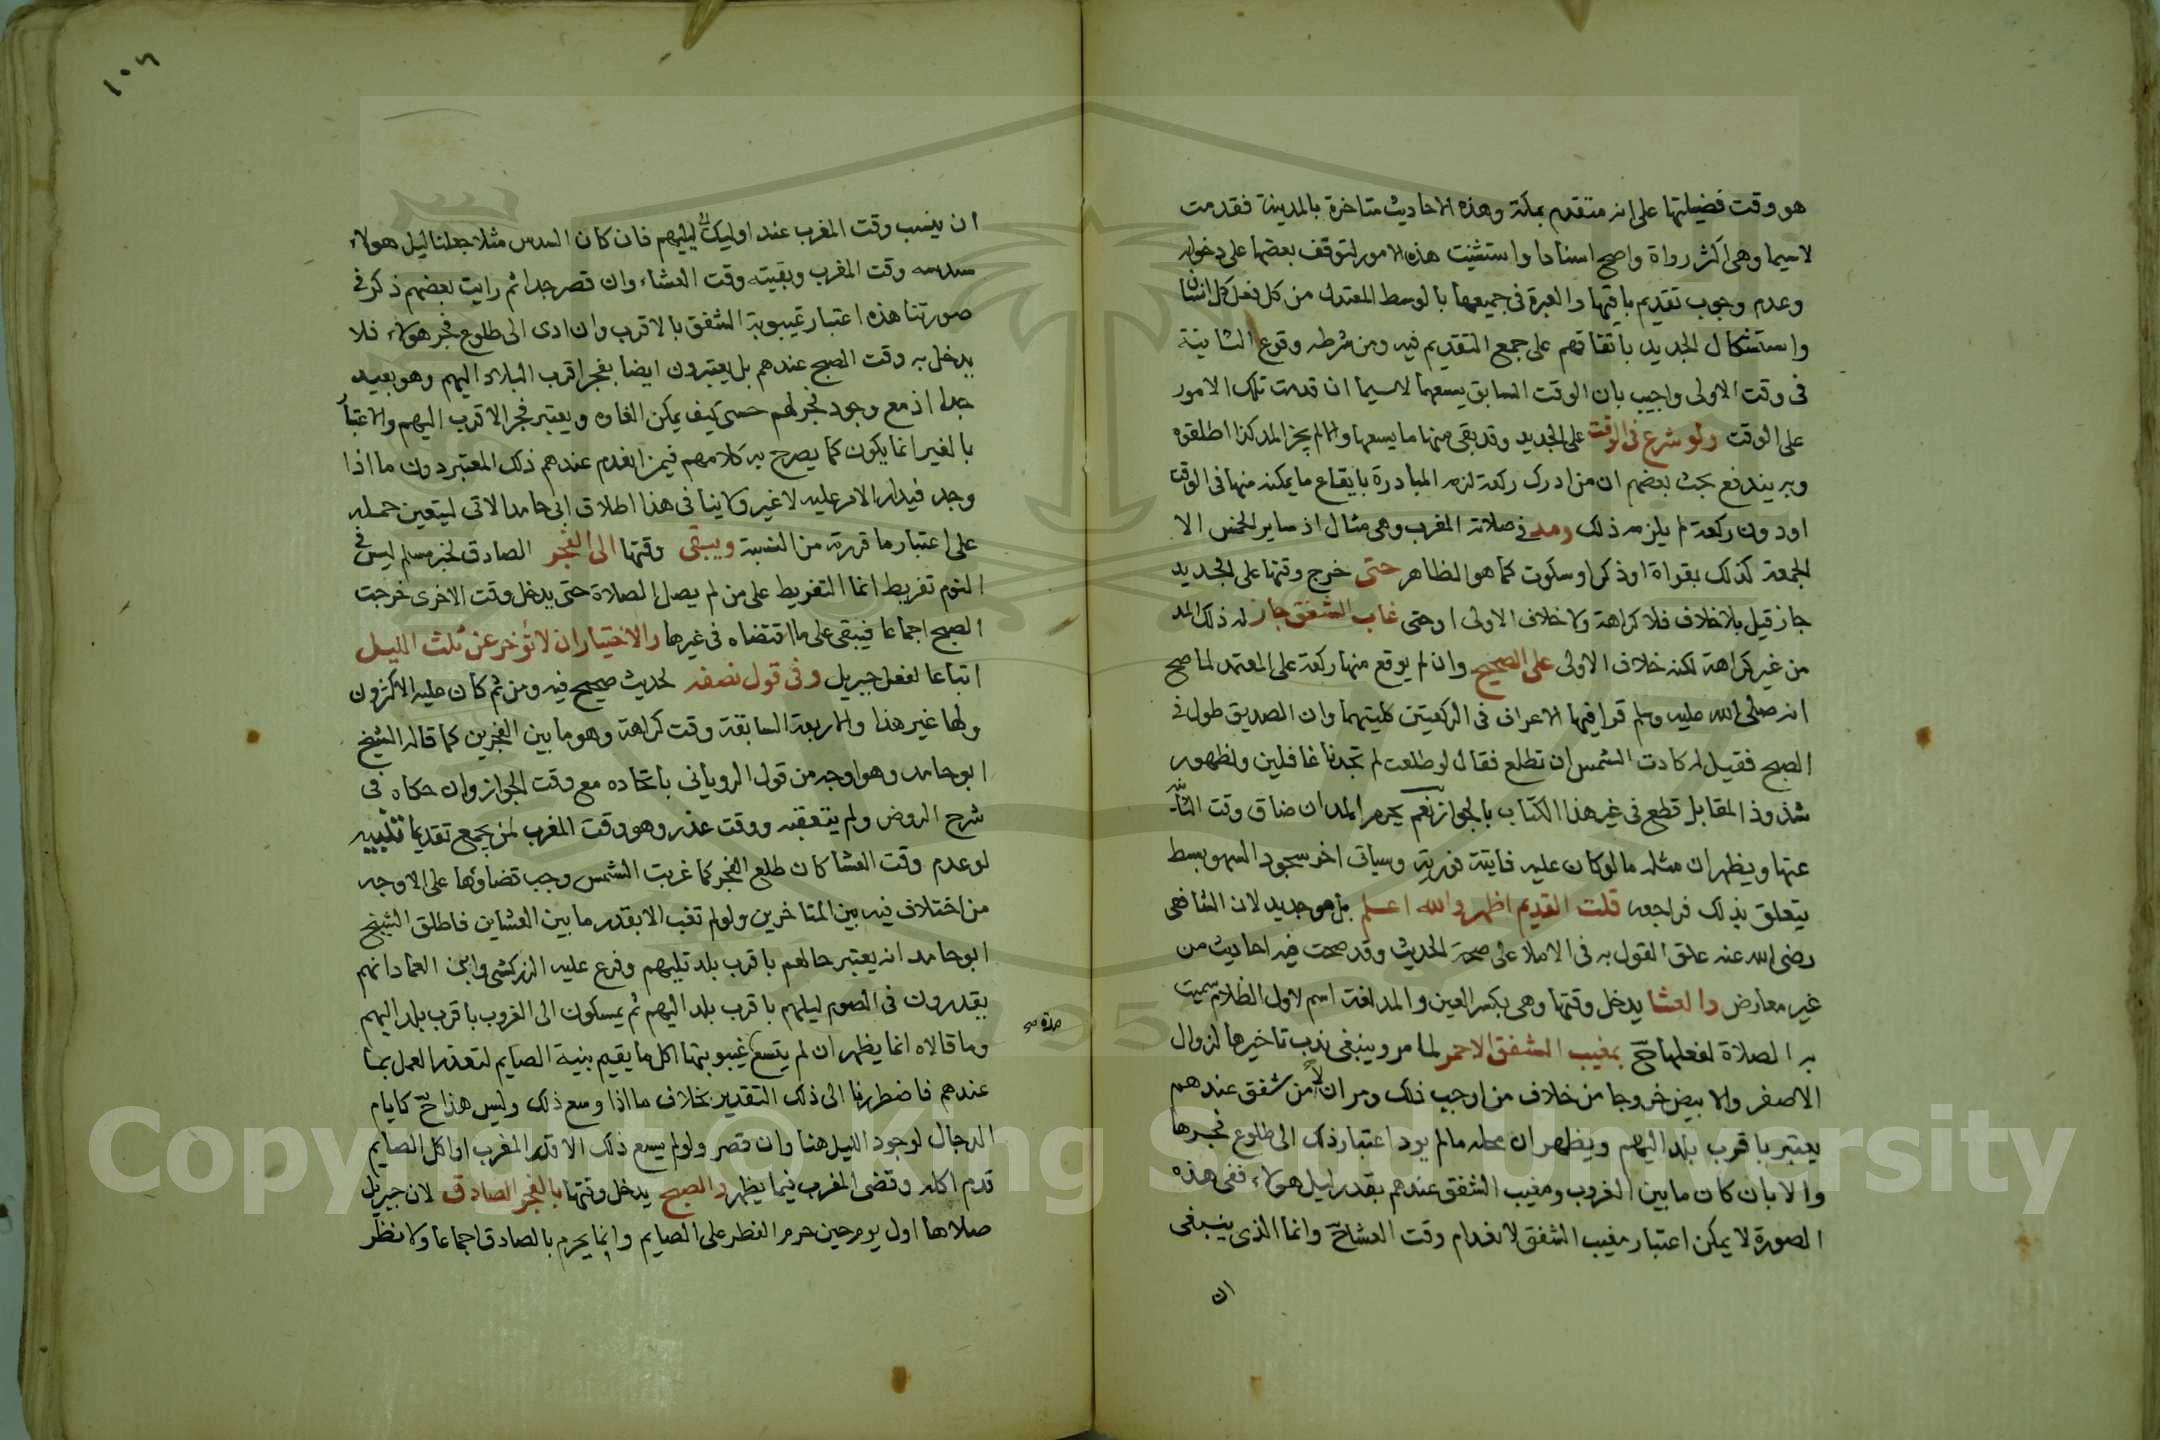 هو وقت فضيلتها على انه متقدم بمكة وهذه الاحاديث متاخرة بالمدينة فقدمت
لاسيما وهى اكثر رواة واصح اسنادا واستثنيت هذه الامور لتوقف بعضها على دخوله
وعدم وجوب تقديم باقيها والعبرة فى جميعها بالوسط المعتدل من كل فعل كل انسان
واستشكال الجديد باتفاقهم على جمع التقديم فيه ومن شرطه وقوع الثانية
فى وقت الاولى واجيب بان الوقت السابق يسعهما لاسيما ان قدمت تلك الامور
على الوقت ولو شرع فى الوقت على الجديد وقد بقى منها ما يسعها والا لم يجز المد كذا اطلقوه
وبه يندفع بحث بعضهم ان من ادرك ركعة لزمه المبادرة بايقاع ما يمكنه منها فى الوقت
او دون ركعة لم يلزمه ذلك ومد فى صلاته المغرب وهى مثال اذ ساير الخمس الا
الجمعة كذلك بقراة او ذكر او سكوت كما هو الظاهر حتى خرج وقتها على الجديد
جاز قيل بلا خلاف فلا كراهة ولا خلاف الاولى او حتى غاب الشفق جاز له ذلك المد
من غير كراهة لكنه خلاف الاولى على الصحيح وان لم يوقع منها ركعة على المعتمد لما صح
انه صلى الله عليه وسلم قرا فيها الاعراف فى الركعتين كليتهما وان الصديق طول فى
الصبح فقيل له كادت الشمس ان تطلع فقال لو طلعت لم تجدنا غافلين ولظهور
شذوذ المقابل قطع فى غير هذا الكتاب بالجواز نعم يحرم المد ان ضاق وقت الثانية
عنها ويظهر ان مثله ما لو كان عليه فايتة فورية وسياتى اخر سجود السهو بسط
يتعلق بذلك فراجعه قلت القديم اظهر والله اعلم بل هو جديد لان الشافعى
رضى الله عنه علق القول به فى الاملا على صحة الحديث وقد صحت فيه احاديث من
غير معارض والعشا يدخل وقتها وهى بكسر العين والمد لغة اسم لاول الظلام سميت
به الصلاة لفعلها ح بمغيب الشفق الاحمر لما مر وينبغى ندب تاخيرها لزوال
الاصفر والابيض خروجا من خلاف من اوجب ذلك ومر ان من لا شفق عندهم
يعتبر باقرب بلد اليهم ويظهر ان محله ما لم يود اعتبار ذلك الى طلوع فجرها
والا بان كان ما بين الغروب ومغيب الشفق عندهم بقدر ليل هولاء ففى هذه
الصورة لا يمكن اعتبار مغيب الشفق لانعدام وقت العشا ح وانما الذى ينبغى
ان
١٠٦
ان ينسب وقت المغرب عند اوليك الى ليلهم فان كان السدس مثلا جعلنا ليل هولاء
سدسه وقت المغرب وبقيته وقت العشاء وان قصر جدا ثم رايت بعضهم ذكر فى
صورتنا هذه اعتبار غيبوبة الشفق بالاقرب وان ادى الى طلوع فجر هولاء فلا
يدخل به وقت الصبح عندهم بل يعتبرون ايضا بفجر اقرب البلاد اليهم وهو بعيد
جدا اذ مع وجود فجر لهم حسى كيف يمكن الغاوه ويعتبر فجر الاقرب اليهم والاعتبار
بالغير انما يكون كما يصرح به كلامهم فيمن انعدم عندهم ذلك المعتبر دون ما اذا
وجد فيدار الامر عليه لا غير ولا ينافى هذا اطلاق ابى حامد الاتى ليتعين حمله
على اعتبار ما قررته من النسبة ويبقى وقتها الى الفجر الصادق لخبر مسلم ليس فى
النوم تفريط انما التفريط على من لم يصل الصلاة حتى يدخل وقت الاخرى خرجت
الصبح اجماعا فيبقى على ما اقتضاه فى غيرها والاختيار ان لا تؤخر عن ثلث الليل
اتباعا لفعل جبريل وفى قول نصفه لحديث صحيح فيه ومن ثم كان عليه الاكثرون
ولها غير هذا والاربعة السابقة وقت كراهة وهو ما بين الفجرين كما قاله الشيخ
ابو حامد وهو اوجه من قول الرويانى باتحاده مع وقت الجواز وان حكاه فى
شرح الروض ولم يتعقبه ووقت عذر وهو وقت المغرب لمن يجمع تقديما تنبيه
لو عدم وقت العشا كان طلع الفجر كما غربت الشمس وجب قضاوها على الاوجه
من اختلاف فيه بين المتاخرين ولو لم تغب الا بقدر ما بين العشاين فاطلق الشيخ
ابو حامد انه يعتبر حالهم باقرب بلد تليهم وفرع عليه الزركشى وابن العماد انهم
يقدرون فى الصوم ليلهم باقرب بلد اليهم ثم يمسكون الى الغروب باقرب بلد اليهم
وما قالاه انما يظهر ان لم يتسع غيبوبتها اكل ما يقيم بنية الصايم لتعذر العمل بما
مدة صح
عندهم فاضطررنا الى ذلك التقدير بخلاف ما اذا وسع ذلك وليس هذا ح كايام
الدجال لوجود الليل هنا وان قصر ولو لم يسع ذلك الا قدر المغرب او اكل الصايم
قدم اكله وقضى المغرب فيما يظهر والصبح يدخل وقتها بالفجر الصادق لان جبريل
صلاها اول يوم حين حرم الفطر على الصايم وانما يحرم بالصادق اجماعا ولا نظر
Copyright © King Saud University
1957